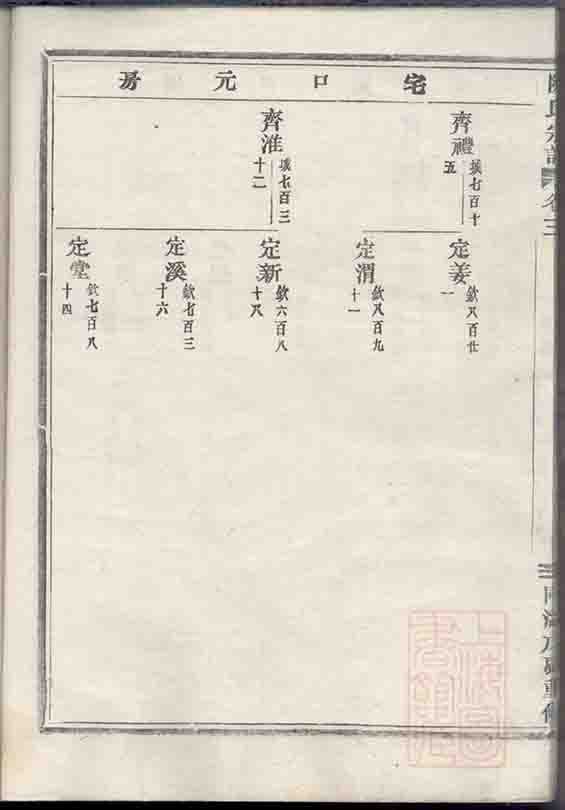 宅口元房
齊禮
七百十
五
齊淮
七百三
十二
定姜
欽八百廿
一
定渭
欽八百九
十一
定新
欽六百八
十八
定溪
欽七百三
十六
定堂
欽七百八
十四
氏宗譜
卷三
重修
上海圖書館